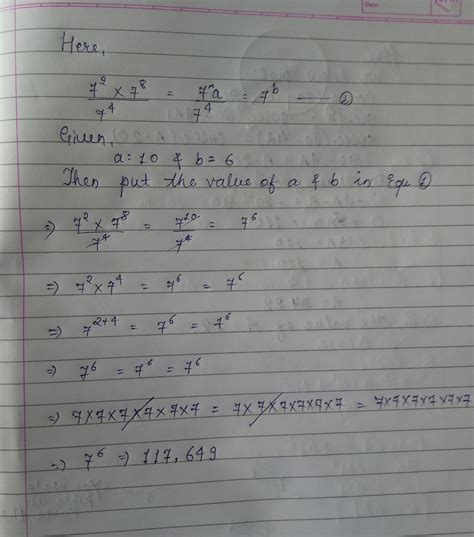 Date:
Here,
7² × 7⁸ / 7⁴ = 7^a / 7⁴ = 7^b —— ①
Given,
a = 10 & b = 6
Then put the value of a & b in Equ ①
⇒ 7² × 7⁸ / 7⁴ = 7¹⁰ / 7⁴ = 7⁶
⇒ 7² × 7⁴ = 7⁶ = 7⁶
⇒ 7²⁺⁴ = 7⁶ = 7⁶
⇒ 7⁶ = 7⁶ = 7⁶
⇒ 7×7×7×7×7×7 = 7×7×7×7×7×7 = 7×7×7×7×7×7
⇒ 7⁶ ⇒ 117,649